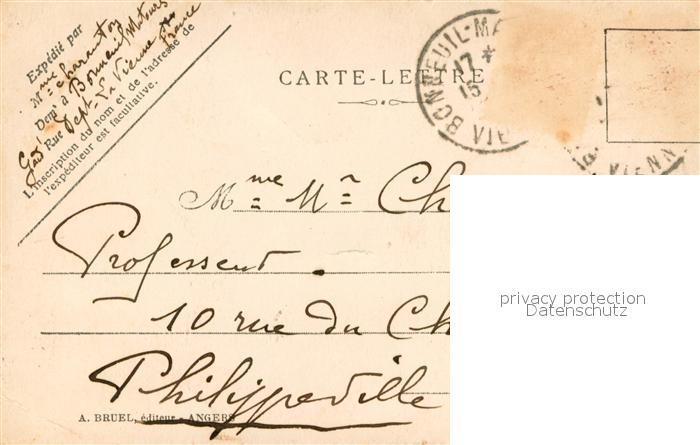 Expédié par
Mme Charenton
Demt à Bonneuil Matours
Gde Rue Dept de Vienne
France
L'inscription du nom et de l'adresse de
l'expéditeur est facultative.
CARTE-LETTRE
BONNEUIL-MA
17 *
15
VIENN
Mme Mr Ch
Professeur.
10 rue du Ch
Philippeville
A. BRUEL, éditeur - ANGERS
privacy protection
Datenschutz